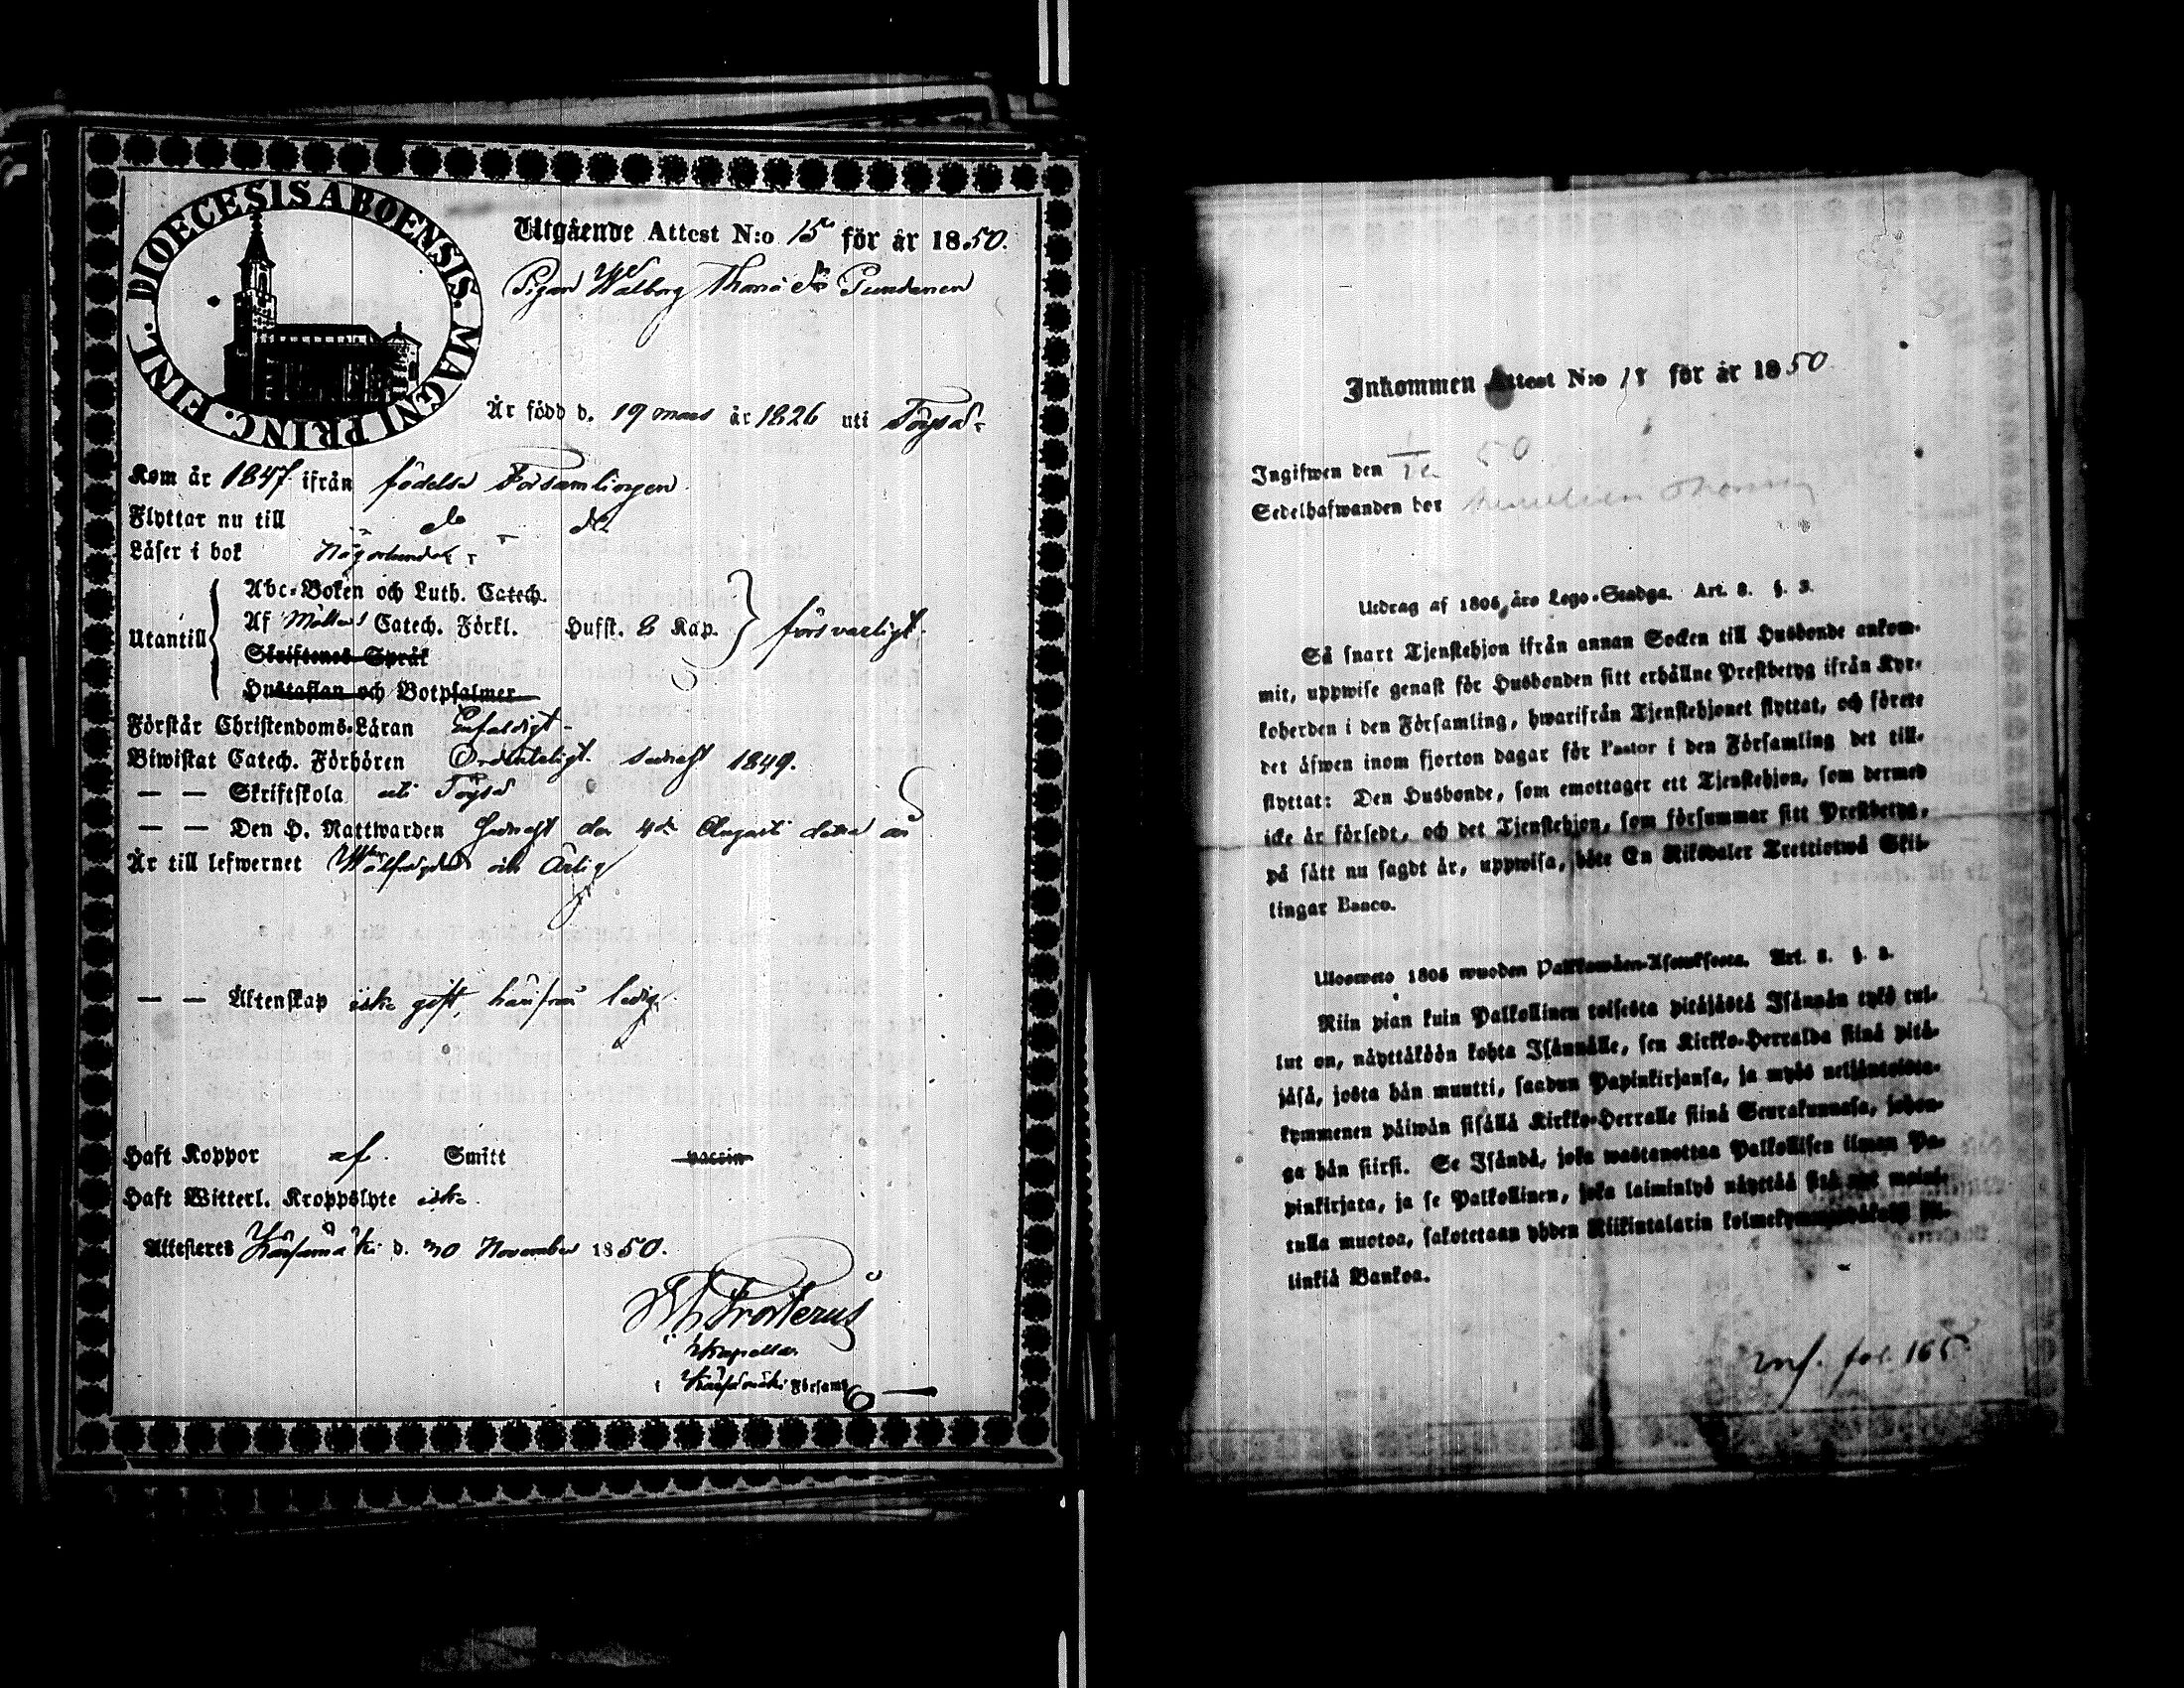 DIOECESIS ABOENSIS. MAGNI PRINC. FINL.
Utgående Attest N:o 15 för år 1850.
Pigan Walborg Thomæ dr
Är född d. 19 mars år 1826 uti Töysä
Kom år 1847 ifrån födelse Församlingen
Flyttar nu till do do
Läser i bok Någorlunda
Utantill
Abc-Boken och Luth. Catech.
Af Möllers Catech. Förkl. Husst. 2 Kap. försvarligt.
Skriftenes Språk
Hustaflan och Botpsalmer
Förstår Christendoms-Läran Enfaldigt
Biwistat Catech. Förhören Ordenteligt senast 1849.
— — Skriftskola uti Töysä
— — Den H. Nattwarden Senast den 4de Augusti detta år
Är till lefwernet Wälfrägdad och Ärlig
— — Äktenskap icke gift, härifrån ledig
Haft Koppor af Smitt vaccin
Haft Witterl. Kroppslyte icke
Attesteres Karstula d. 30 November 1850.
Frosterus
Kapellan
i Församl.
Inkommen Attest N:o 18 för år 1850
Ingifwen den 1/12 50
Sedelhafwanden ber
Utdrag af 1805 års Lego-Stadga. Art. 8. §. 3.
Så snart Tjenstehjon ifrån annan Socken till Husbonde ankom-
mit, uppwise genast för Husbonden sitt erhållne Prestbetyg ifrån Kyr-
koherden i den Församling, hwarifrån Tjenstehjonet flyttat, och förete
det äfwen inom fjorton dagar för Pastor i den Församling det till-
flyttat: Den Husbonde, som emottager ett Tjenstehjon, som dermed
icke är försedt, och det Tjenstehjon, som försummar sitt Prestbetyg,
på sätt nu sagdt är, uppwisa, böte En Riksdaler Trettiotwå Skil-
lingar Banco.
Ulosweto 1805 wuoden Palkkawäen-Asetuksesta. Art. 8. §. 3.
Niin pian kuin Palkollinen toisesta pitäjästä Isännän tykö tul-
lut on, näyttäköön kohta Isännälle, sen Kirkko-Herralda siinä pitä-
jäsä, josta hän muutti, saadun Papinkirjansa, ja myös neljäntoista-
kymmenen päiwän sisällä Kirkko-Herralle siinä Seurakunnasa, johon-
ga hän siirsi. Se Isändä, joka wastanottaa Palkollisen ilman Pa-
pinkirjata, ja se Palkollinen, joka laiminlyö näyttää sitä nyt mainit-
tulla muotoa, sakotetaan yhden Riikintalarin kolmekymmentäkaksi kil-
linkiä Bankoa.
fol. 165